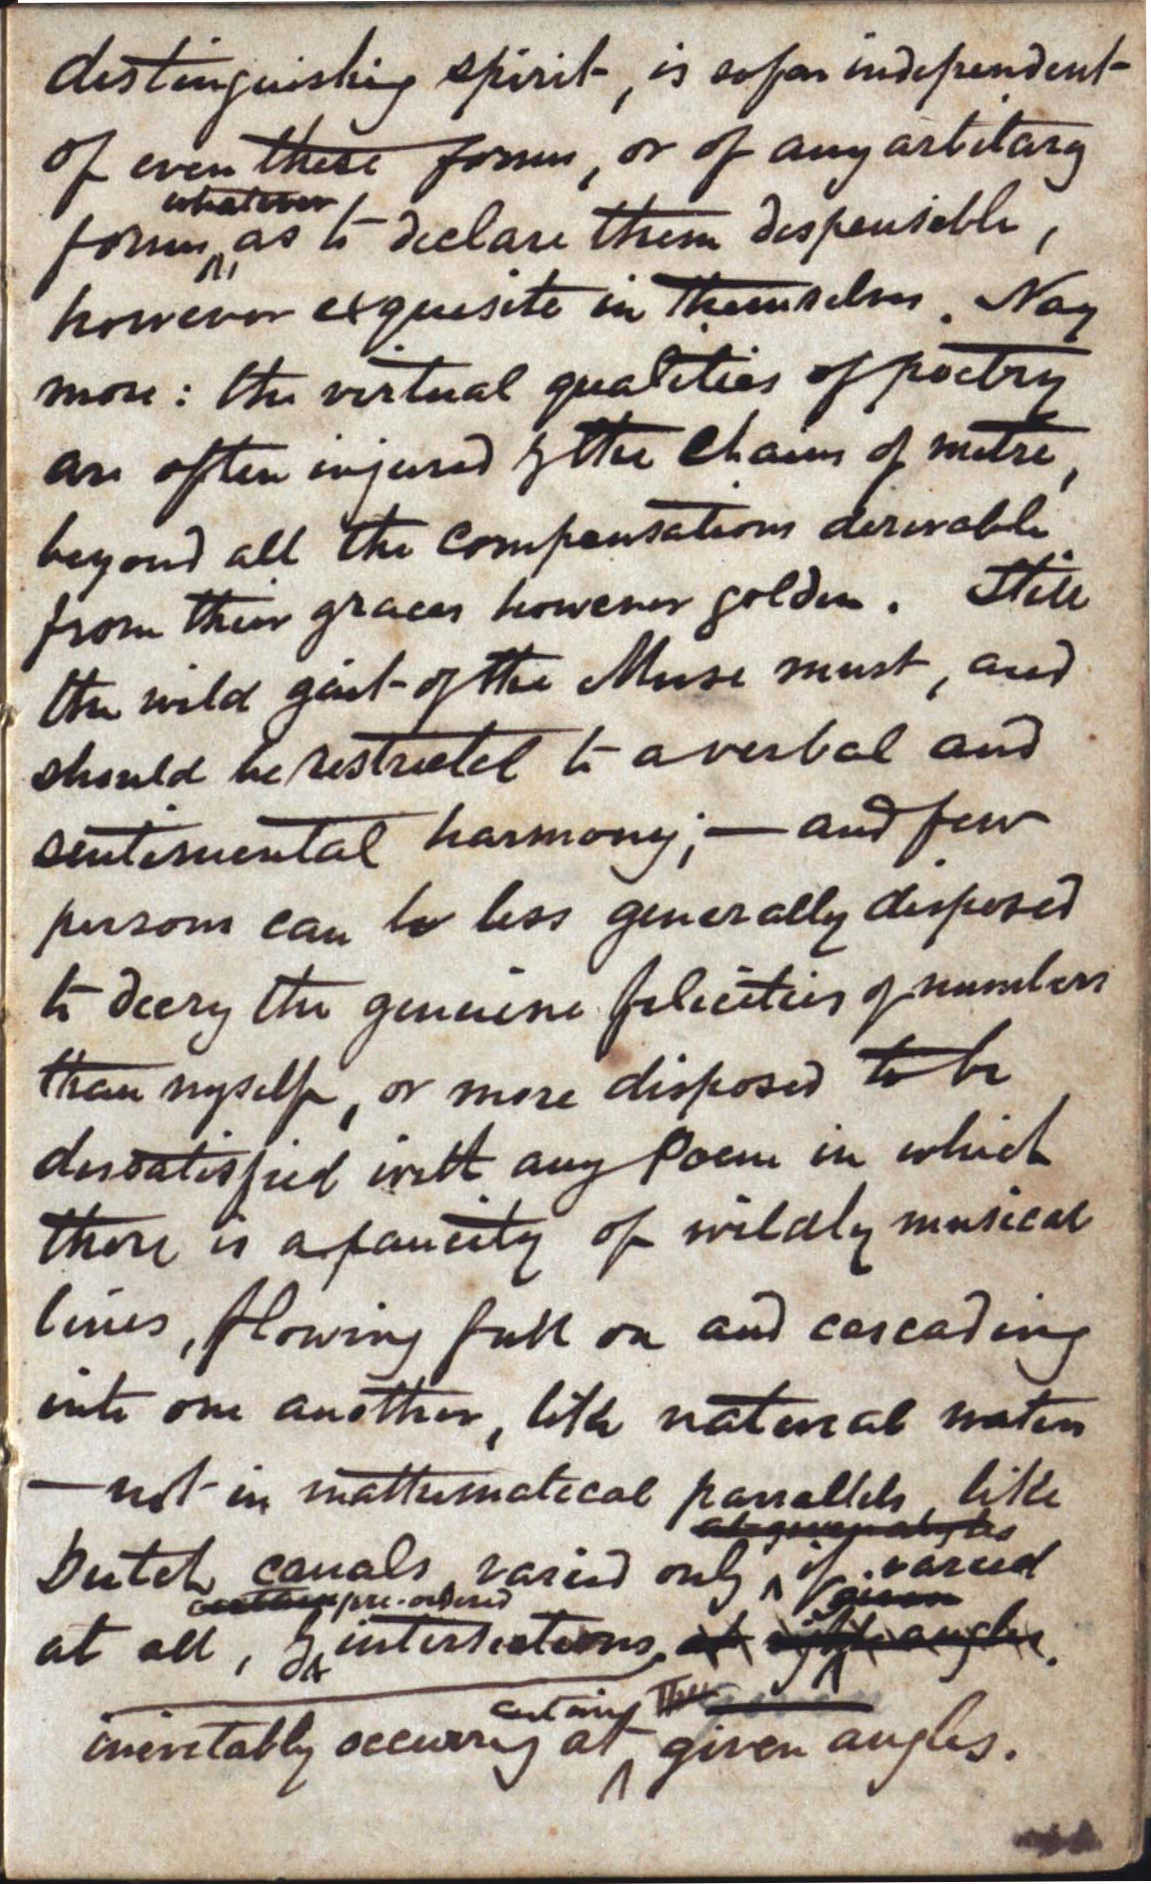 distinguishing spirit, is sofar independent
of even these forms, or of any arbitary
whatever
forms, as to declare them dispensible,
however exquisite in themselves. Nay
more: the virtual qualities of poetry
are often injured by the chains of metre,
beyond all the compensations derivable
from their graces however golden. Still
the wild gait of the Muse must, and
should be restricted to a verbal and
sentimental harmony; — and few
persons can be less generally disposed
to decry the genuine felicities of numbers
than myself, or more disposed to be
dissatisfied with any Poem in which
there is a paucity of wildly musical
lines, flowing full on and cascading
into one another, like natural waters
— not in mathematical parrallels like
at given angles
Dutch canals varied only, if varied
certain pre-ordered given
at all, by intersections, at right angles.
certain
inevitably occurring at given angles.